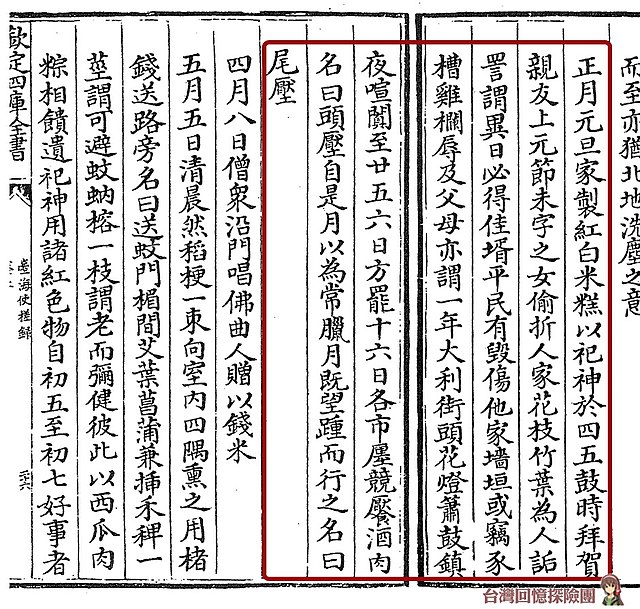 而至亦猶北地洗塵之意
正月元旦家製紅白米糕以祀神於四五鼓時拜賀
親友上元節未字之女偷折人家花枝竹葉為人詬
詈謂異日必得佳壻平民有毀傷他家墻垣或竊豕
槽雞欄辱及父母亦謂一年大利街頭花燈簫鼓鎮
夜喧闐至廿五六日方罷十六日各市廛競饜酒肉
名曰頭壓自是月以為常臘月既望踵而行之名曰
尾壓
四月八日僧衆沿門唱佛曲人贈以錢米
五月五日清晨然稻梗一束向室内四隅熏之用楮
錢送路旁名曰送蚊門楣間艾葉菖蒲兼插禾稗一
莖謂可避蚊蚋榕一枝謂老而彌健彼此以西瓜肉
粽相饋遺祀神用諸紅色物自初五至初七好事者
欽定四庫全書
臺海使槎録
卷二
二十六
台灣回憶探險團